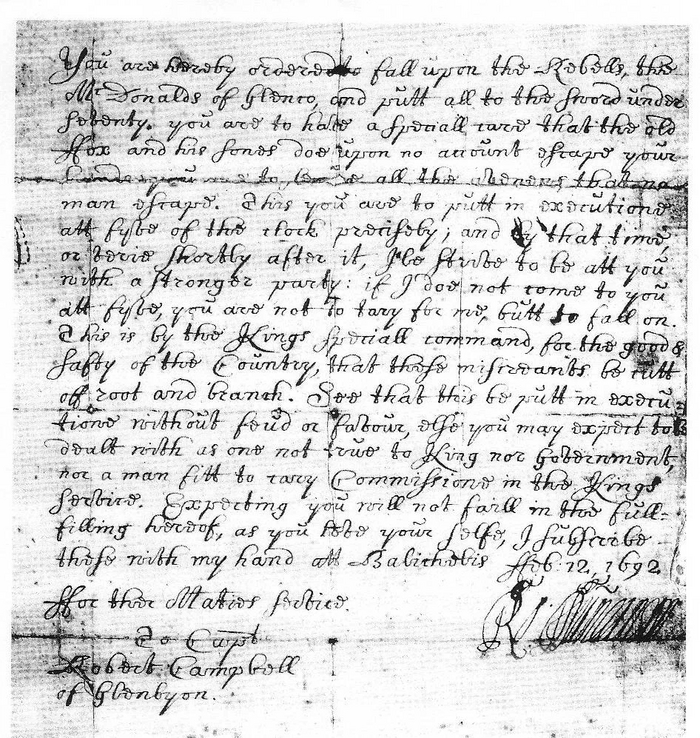 You are hereby ordered to fall upon the Rebells, the
McDonalds of Glenco, and putt all to the sword under
seventy. you are to have a speciall care that the old
ffox and his sones doe upon no account escape your
hands you are to secure all the avenues that no
man escape. This you are to putt in executione
att fyve of the clock precisely; and by that time,
or verie shortly after it, I'le strive to be att you
with a stronger party: if I doe not come to you
att fyve, you are not to tary for me, butt to fall on.
This is by the Kings speciall command, for the good &
safty of the Country, that these miscreants be cutt
off root and branch. See that this be putt in execu
tione without feud or favour, else you may expect to be
dealt with as one not true to King nor Government,
nor a man fitt to cary Commissione in the Kings
service. Expecting you will not faill in the full=
filling hereof, as you love your selfe, I subscribe
these with my hand att Balicholis ffeb: 12, 1692
ffor ther Maties service
R:
To Capt
Robert Campbell
of Glenlyon.